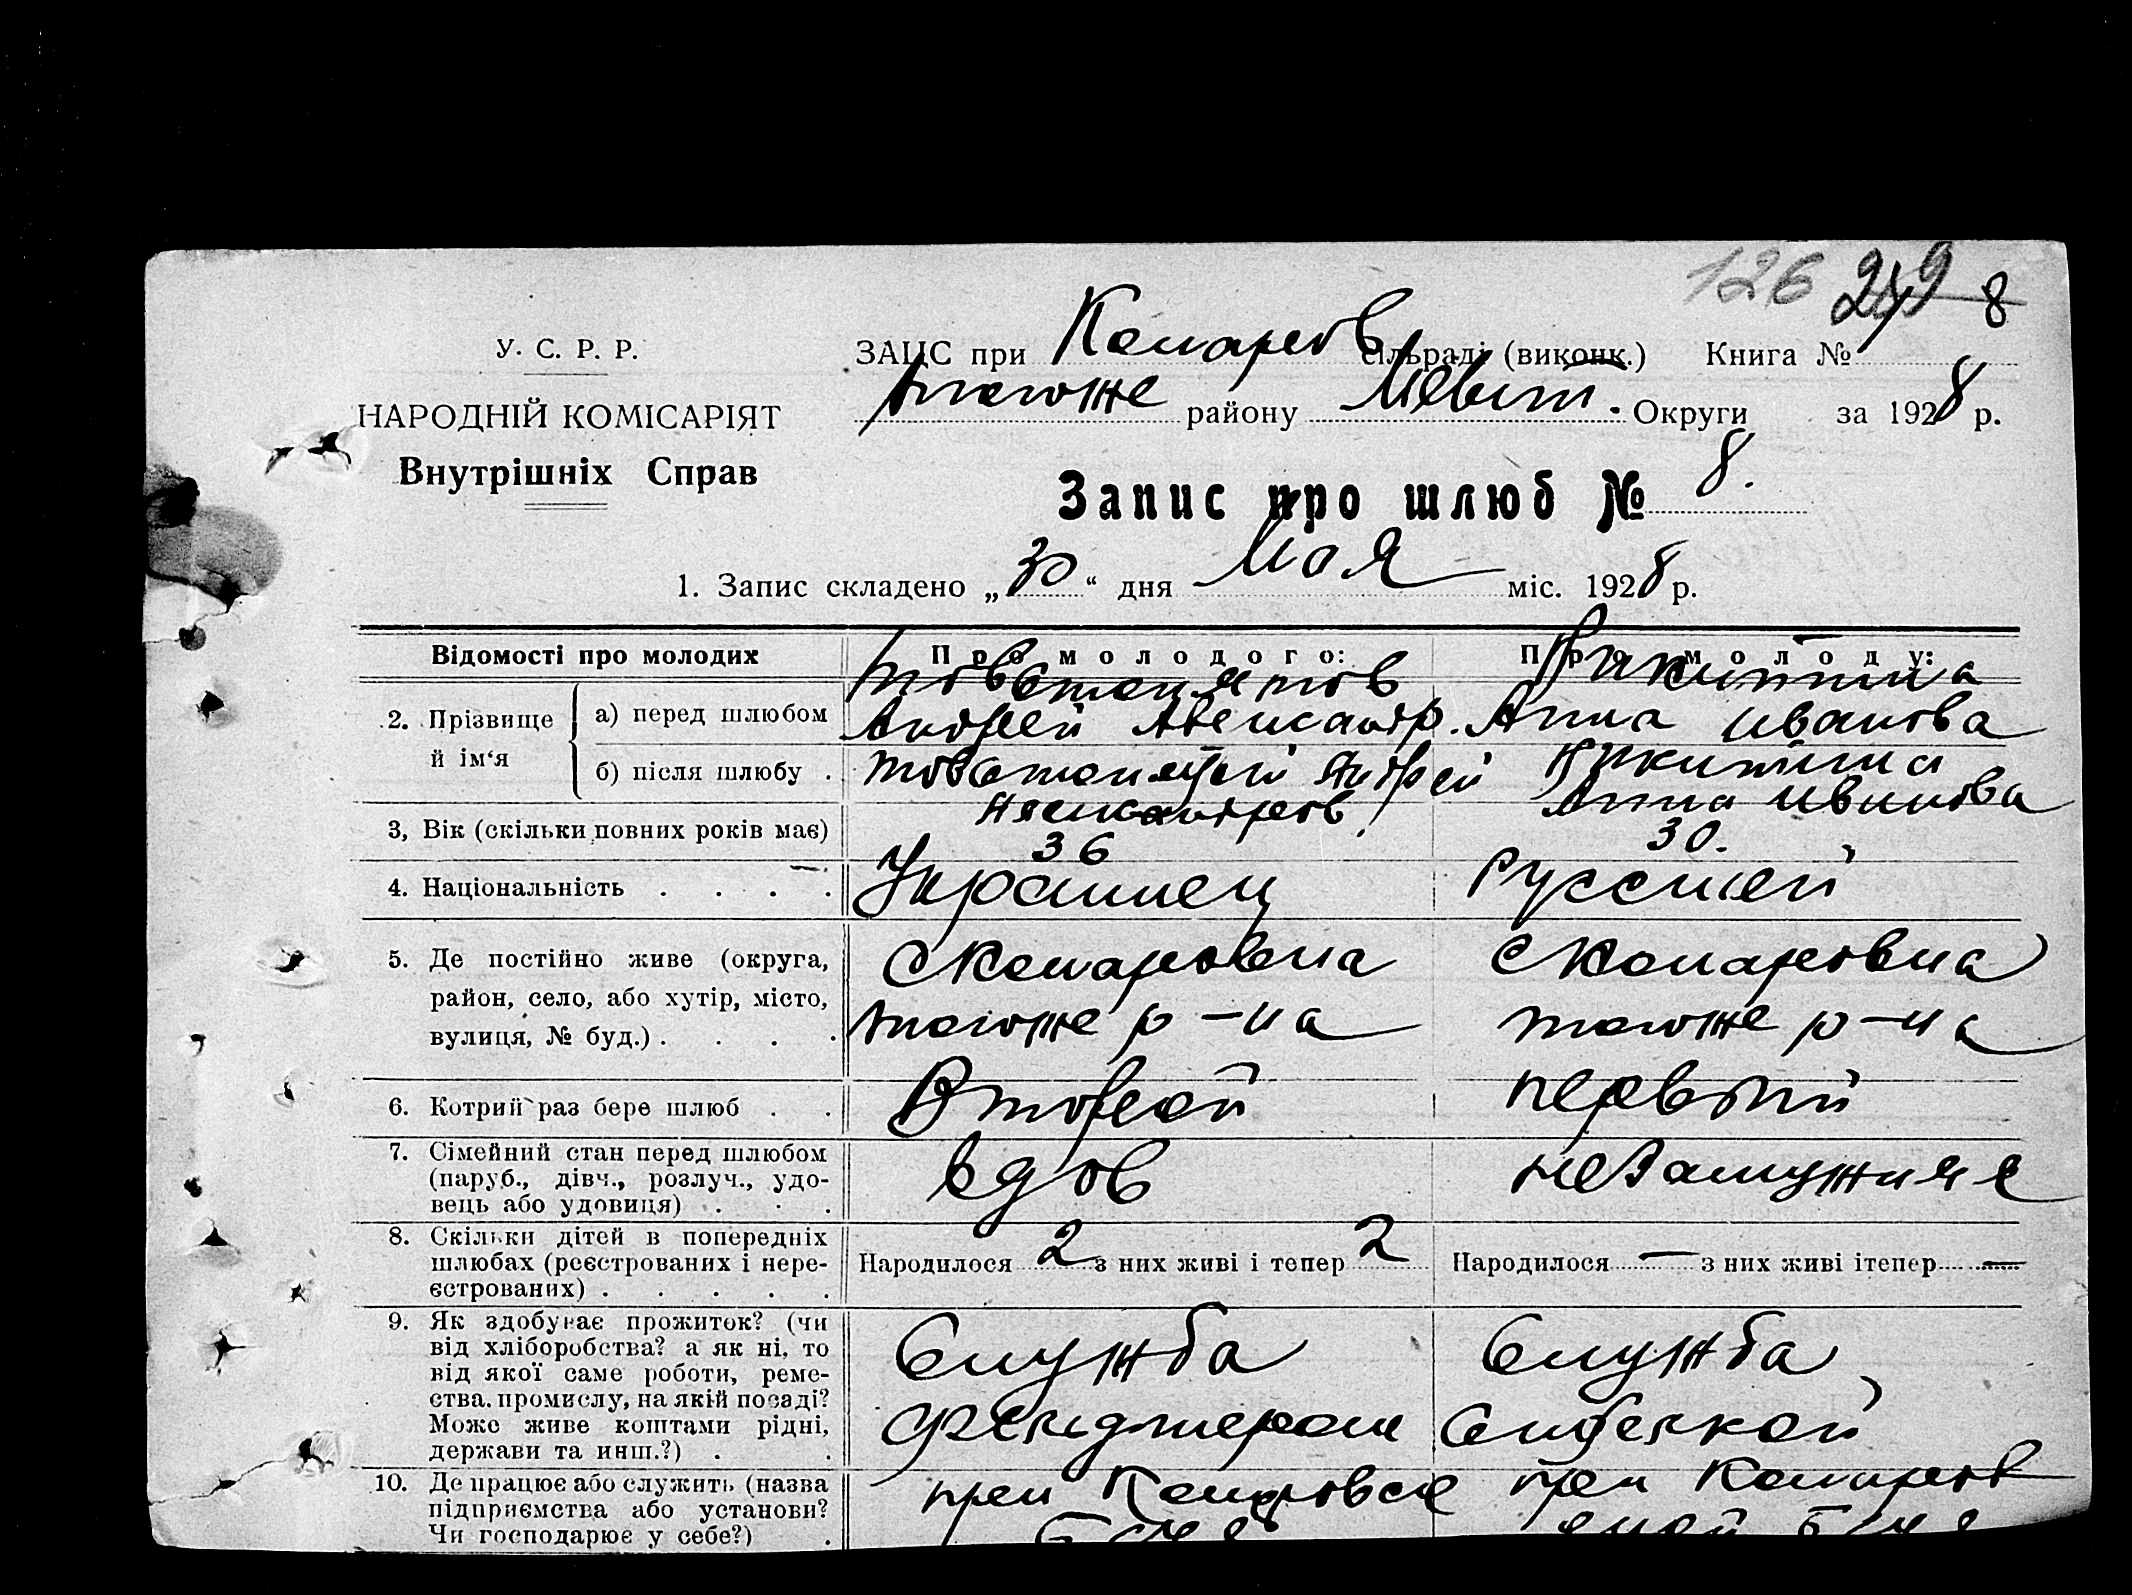 126 249 8
У. С. Р. Р.
НАРОДНІЙ КОМІСАРІЯТ
Внутрішніх Справ
ЗАЦС при Комаров сільраді (виконк.) Книга №
тогоже району Округи за 1928 р.
Запис про шлюб № 8.
1. Запис складено „30“ дня Мая міс. 1928 р.
Відомості про молодих
Про молодого:
Про молоду:
2. Прізвище й ім‘я
а) перед шлюбом
Андрей Александр.
Никитина
Анна Иванова
б) після шлюбу .
Андрей
Александров
Никитина
Анна Иванова
3, Вік (скільки повних років має)
36
30.
4. Національність . . . .
Украинец
Русский
5. Де постійно живе (округа,
район, село, або хутір, місто,
вулиця, № буд.) . . . .
с Комаровка
тогоже р-на
с Комаровка
тогоже р-на
6. Котрий раз бере шлюб . .
Второй
первый
7. Сімейний стан перед шлюбом
(паруб., дівч., розлуч., удо-
вець або удовиця) . . .
вдов
незамужняя
8. Скільки дітей в попередніх
шлюбах (реєстрованих і нере-
єстрованих) . . . . .
Народилося 2 з них живі і тепер 2
Народилося — з них живі ітепер —
9. Як здобуває прожиток? (чи
від хліборобства? а як ні, то
від якої саме роботи, реме-
ства, промислу, на якій посаді?
Може живе коштами рідні,
держави та инш.?) . .
Служба
фельдшером
Служба
Сиделкой
10. Де працює або служить (назва
підприємства або установи?
Чи господарює у себе?) .
при
при Комаров